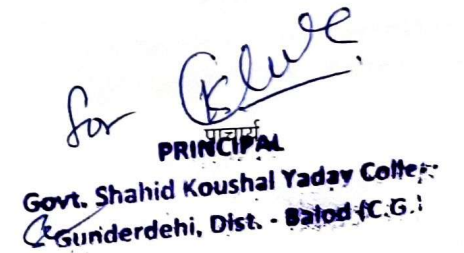 for
प्राचार्य
PRINCIPAL
Govt. Shahid Koushal Yadav Colle
Gunderdehi, Dist. - Balod (C.G.)